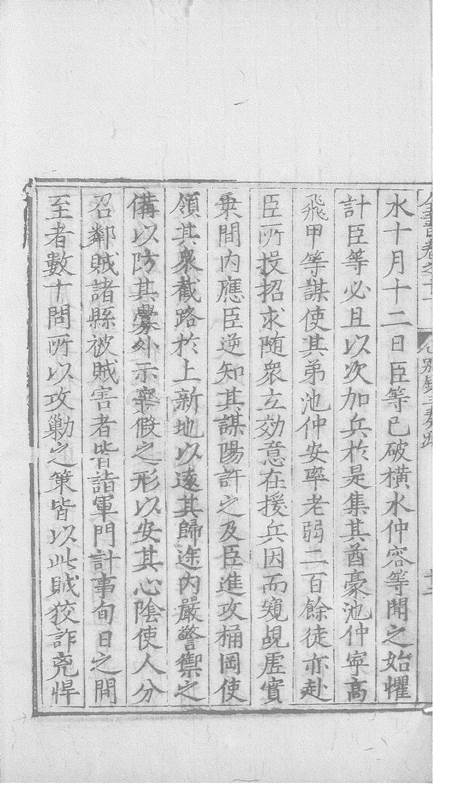 全書卷之十一
別錄三奏疏
水十月十二日臣等已破橫水仲容等聞之始懼
計臣等必且以次加兵於是集其酋豪池仲寧高
飛甲等謀使其弟池仲安率老弱二百餘徒亦赴
臣所投招求隨衆立効意在援兵因而窺覘虛實
乗間內應臣逆知其謀陽許之及臣進攻桶岡使
領其衆截路於上新地以遠其歸途內嚴警禦之
備以防其釁外示寬假之形以安其心陰使人分
召鄰賊諸縣被賊害者皆詣軍門計事旬日之間
至者數十問所以攻勦之策皆以此賊狡詐兇悍